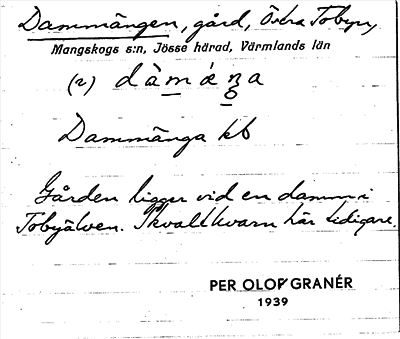 Dammängen, gård, Östra Tobyn,
Mangskogs s:n, Jösse härad, Värmlands län
(2) dàmǽŋa
Dammänga kb
Gården ligger vid en damm i
Tobyälven. Skvaltkvarn här tidigare.
PER OLOF GRANÉR
1939